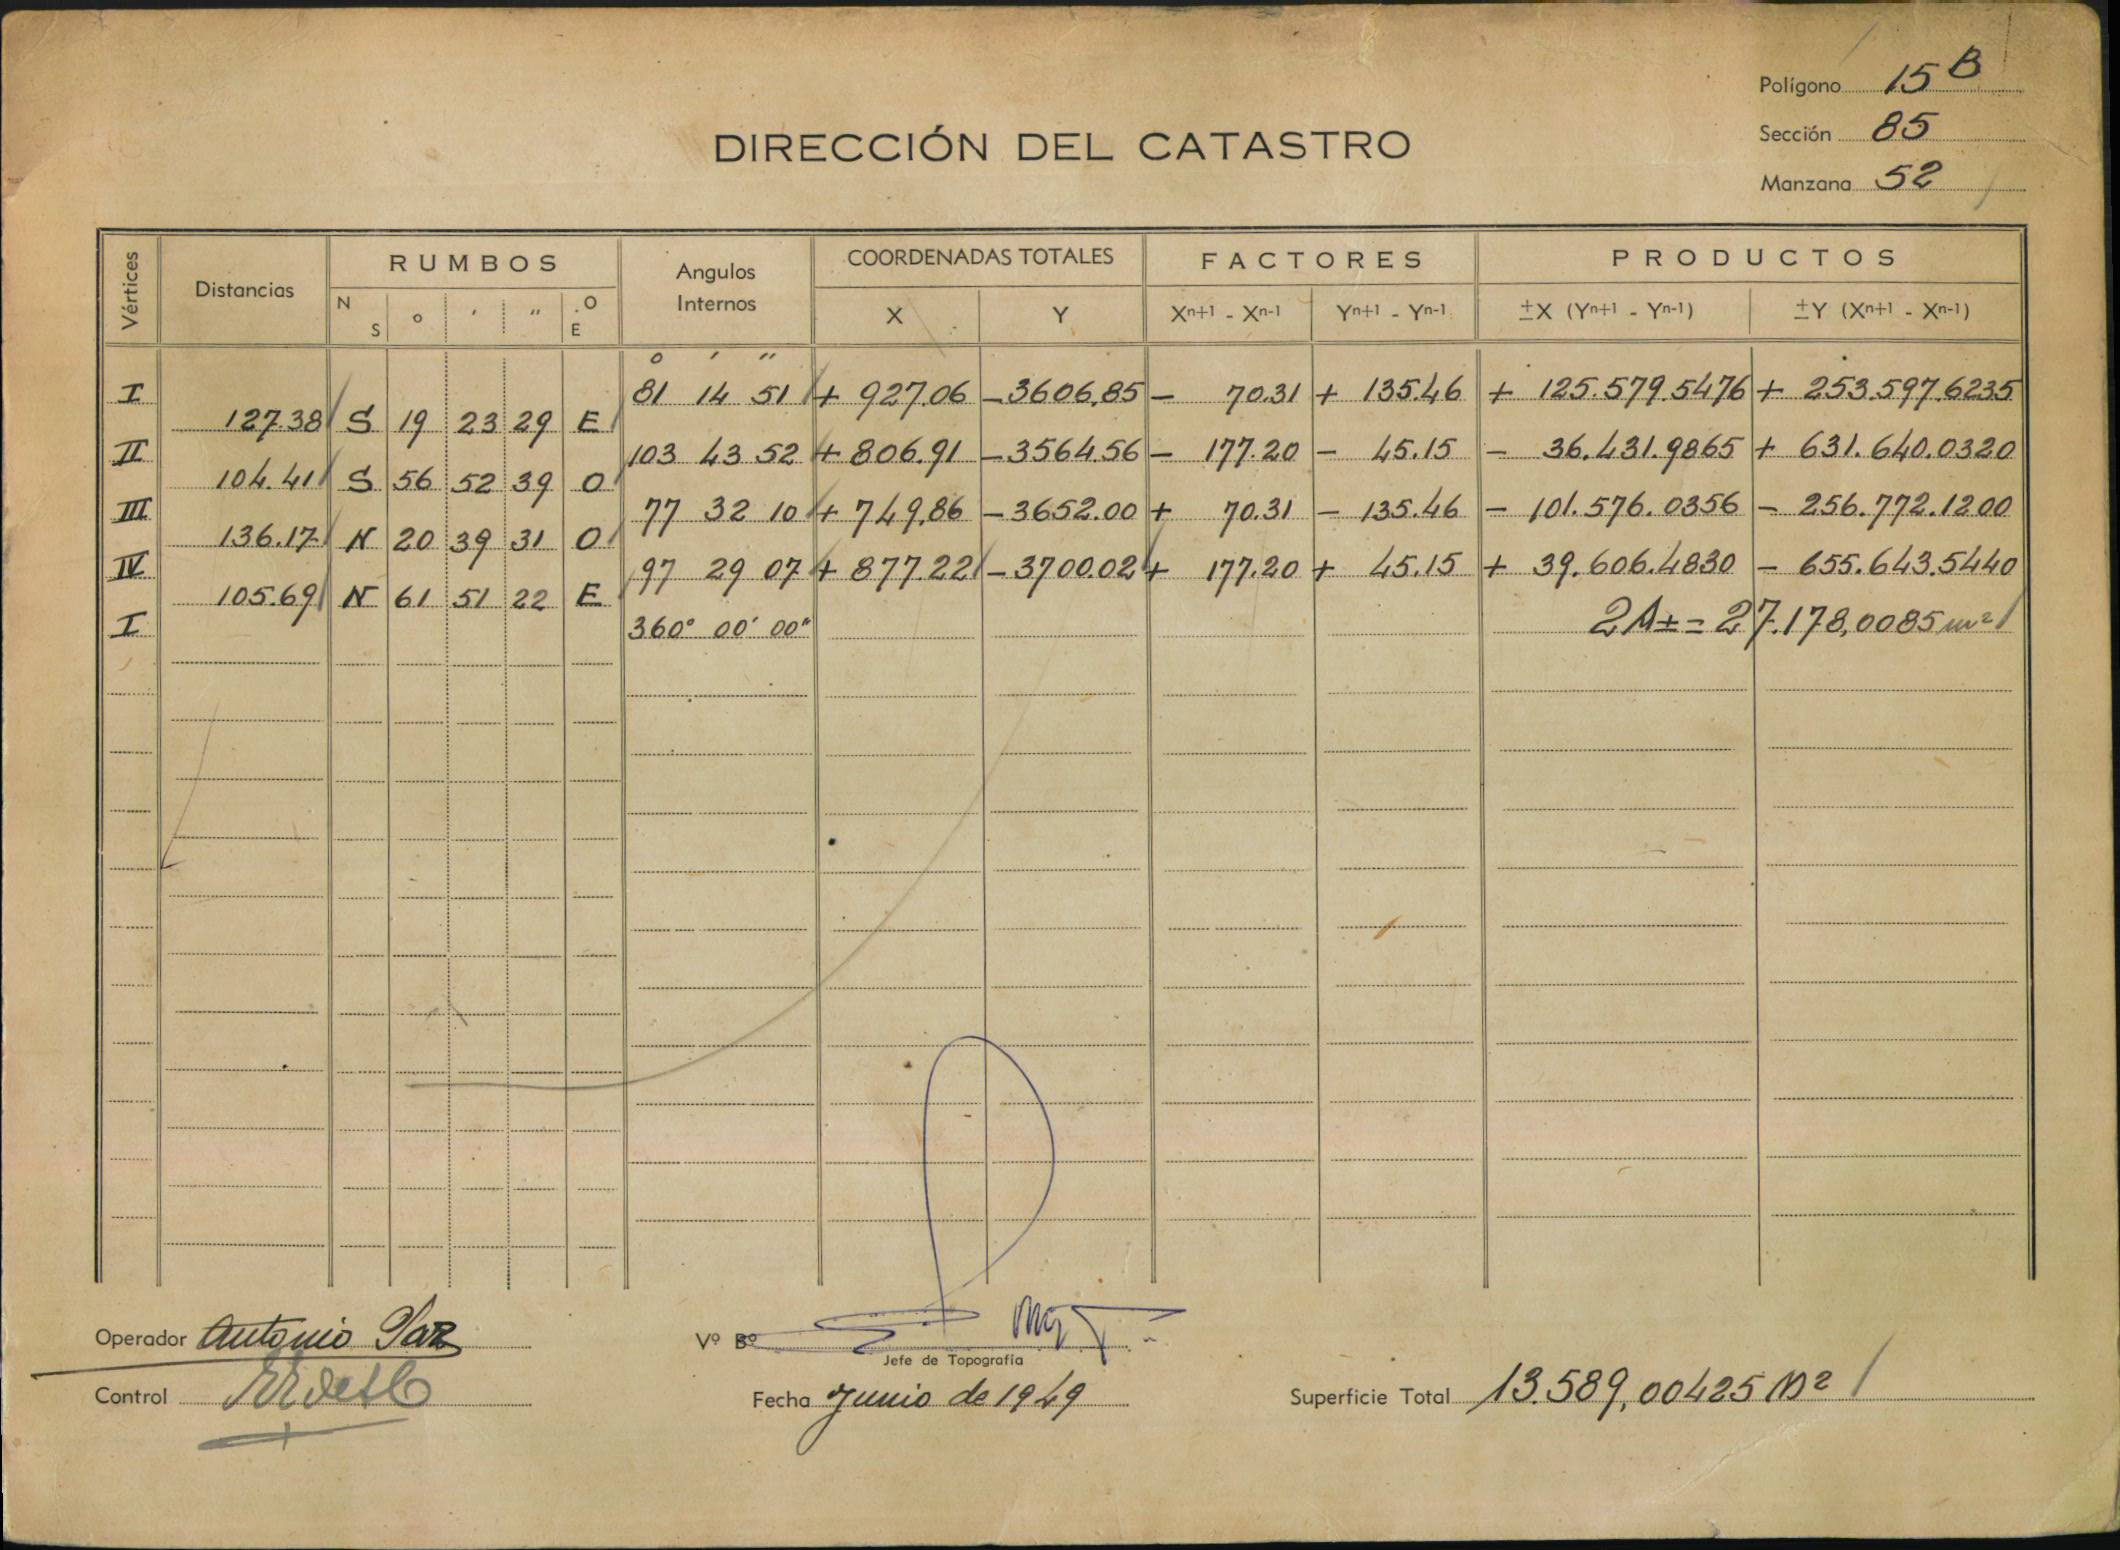 Polígono 15 B
Sección 85
Manzana 52
DIRECCIÓN DEL CATASTRO
Vértices Distancias RUMBOS Angulos Internos COORDENADAS TOTALES FACTORES PRODUCTOS
N S o ' '' O E X Y Xn+1 - Xn-1 Yn+1 - Yn-1 ±X (Yn+1 - Yn-1) ±Y (Xn+1 - Xn-1)
o ' ''
I 81 14 51 + 927.06 -3606.85 - 70.31 + 135.46 + 125.579.5476 + 253.597.6235
127.38 S 19 23 29 E
II 103 43 52 + 806.91 -3564.56 - 177.20 - 45.15 - 36.431.9865 + 631.640.0320
104.41 S 56 52 39 O
III 77 32 10 + 749.86 -3652.00 + 70.31 - 135.46 - 101.576.0356 - 256.772.1200
136.17 N 20 39 31 O
IV 97 29 07 + 877.22 -3700.02 + 177.20 + 45.15 + 39.606.4830 - 655.643.5440
105.69 N 61 51 22 E
I 360° 00' 00" 2A± = 27.178,0085 m2
Operador Antonio Vº Bº
Jefe de Topografía
Control Fecha Junio de 1949 Superficie Total 13.589,00425 M2